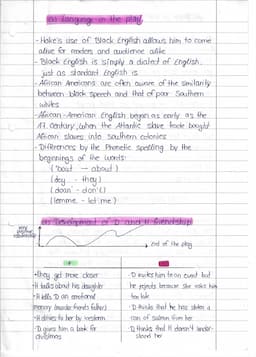 Language in the play
- Hoke's use of Black English allows him to come
alive for readers and audience alike
- Black English is simply a dialect of English,
just as standard English is
- African Americans are often aware of the similarity
between black speech and that of poor Southern
whites
- African-American English began as early as the
17. century, when the Atlantic slave trade bought
African slaves into Southern colonies
- Differences by the Phonetic spelling by the
beginnings of the words:
('bout → about)
(dey - they)
(doan' - don't)
(lemme - let me)
Development of D and H friendship
end of the play
+
-
- they get more closer
- H talks about his daughter
- H tells D an emotional
memory (murder friends father)
- H drives to her by
- D gives him a book for
christmas
- D invites him to an event but
he rejects because she asks him
too late
- D thinks that he has stolen a
can of salmon from her
- D thinks that H doesn't under-
stand her